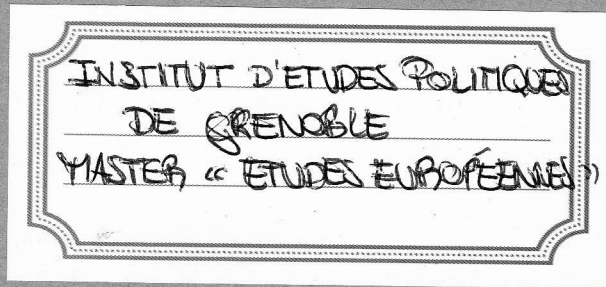 INSTITUT D'ETUDES POLITIQUES
DE GRENOBLE
MASTER « ETUDES EUROPÉENNES »